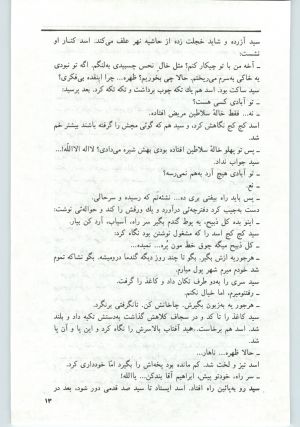 سید آزرده و شاید خجلت زده از حاشیه نهر علف می‌کند. اسد کنار او
نشست:
ـ آخه من با تو چیکار کنم؟ مثل خال نحس چسبیدی به‌لنگم. اگه تو نبودی
یه خاکی به‌سرم می‌ریختم. حالا چی بخوریم؟ ظهره... چرا اینقده بی‌فکری؟
سید ساکت بود. اسد هم یك تکه چوب برداشت و تکه تکه کرد. بعد پرسید:
ـ تو آبادی کسی هست؟
ـ نه... فقط خاله سلاطین مریض افتاده.
اسد کج کج نگاهش کرد، و سید هم که گوئی مچش را گرفته باشند بیشتر خم
شد.
ـ پس تو پهلو خاله سلاطین افتاده بودی بهش شیره می‌دادی؟ لااله الاالله!
سید جواب نداد.
ـ تو آبادی هیچ آرد به‌هم نمیرسه؟
ـ نع.
ـ پس باید راه بیفتی بری ده... نشنه‌نم که رسیده و سرحالی.
دست به‌جیب کرد دفترچه‌ئی درآورد و یك ورقش را کند و حواله‌ئی نوشت:
ـ اینو بده کل ذبیح، یه بوط گندم بگیر سر راه، آسیاب، آرد کن بیار.
سید کج کج اسد را که مشغول نوشتن بود نگاه کرد:
ـ کل ذبیح میگه چوق خط مون پُره... نمیده...
ـ هرجوریه ازش بگیر. بگو تا چند روز دیگه گندما درومیشه. بگو نشاکه تموم
شد خودم میرم شهر پول میارم.
سید سری را به‌دو طرف تکان داد و کاغذ را گرفت.
ـ رفتومیرم، اما خیال نکنم.
ـ هرجور یه به‌زبون بگیرش. چاخانش کن. تانگرفتی برنگرد.
سید کاغذ را تا کرد و در سجاف کلاهش گذاشت به‌دستش تکیه داد و بلند
شد. اسد هم برخاست..همید آفتاب بالاسرش را نگاه کرد و این پا و آن پا
شد.
ـ حالا ظهره... ناهار...
اسد تیز و لخت شد. کم مانده بود یخه‌اش را بگیرد اما خودداری کرد.
ـ سر راه، خودتو پیش، ابراهیم آقا بندکن... یاالله!
سید رو به‌پائین راه افتاد. اسد ایستاد تا سید صد قدمی دور شود، بعد در
۱۳